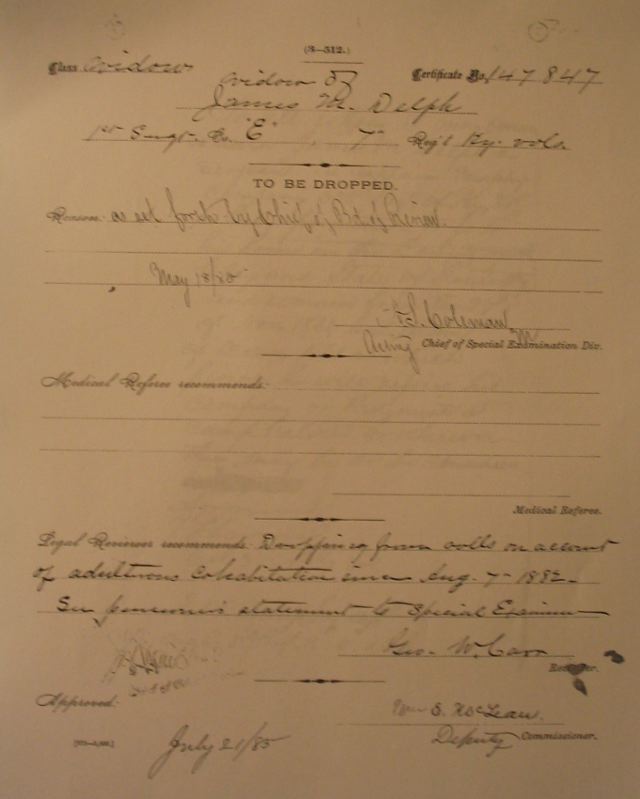 (3—512.)
Class Widow Certificate No. 147 847
Widow of
James M. Delph
1st Sergt. Co. "E", 7" Reg't Ky. vols.
TO BE DROPPED.
Reason: as set forth by Chief of Bd. of Review.
May 18/85
Coleman
Acting Chief of Special Examination Div.
Medical Referee recommends:
Medical Referee.
Legal Reviewer recommends: Dropping from rolls on account
of adulterous cohabitation since Aug. 7" 1882.
See pensioner's statement to Special Examiner
Geo. W. Carr
Reviewer.
Approved:
Wm E. McLean.
Deputy Commissioner.
July 21/85